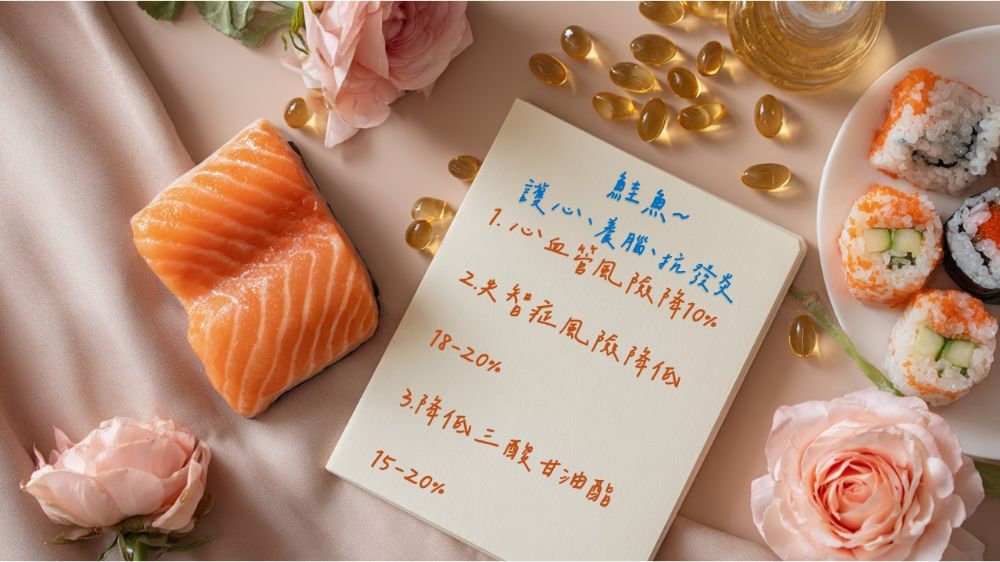 鮭魚~
護心、養腦、抗發炎
1.心血管風險降10%
2.失智症風險降低
18-20%
3.降低三酸甘油酯
15-20%